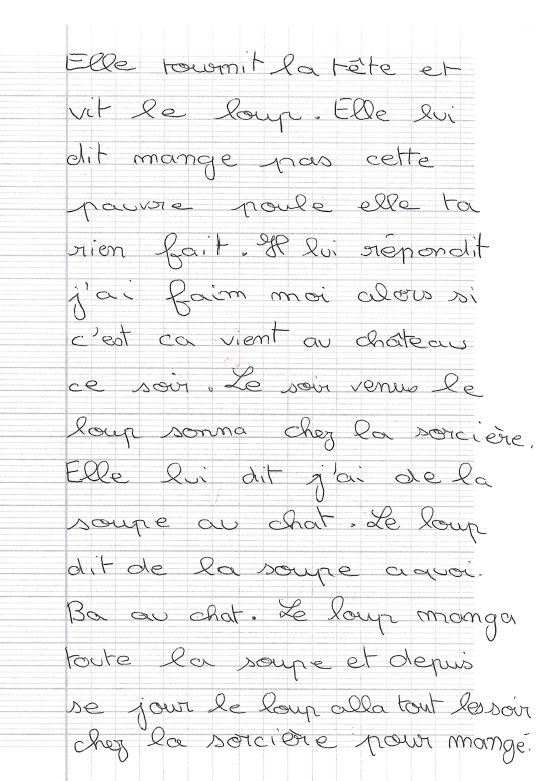 Elle tournit la tête et
vit le loup. Elle lui
dit mange pas cette
pauvre poule elle ta
rien fait. Il lui répondit
j'ai faim moi alors si
c'est ca vient au château
ce soir. Le soir venus le
loup sonna chez la sorcière.
Elle lui dit j'ai de la
soupe au chat. Le loup
dit de la soupe a quoi.
Ba au chat. Le loup manga
toute la soupe et depuis
se jour le loup alla tout les soir
chez la sorcière pour mangé.